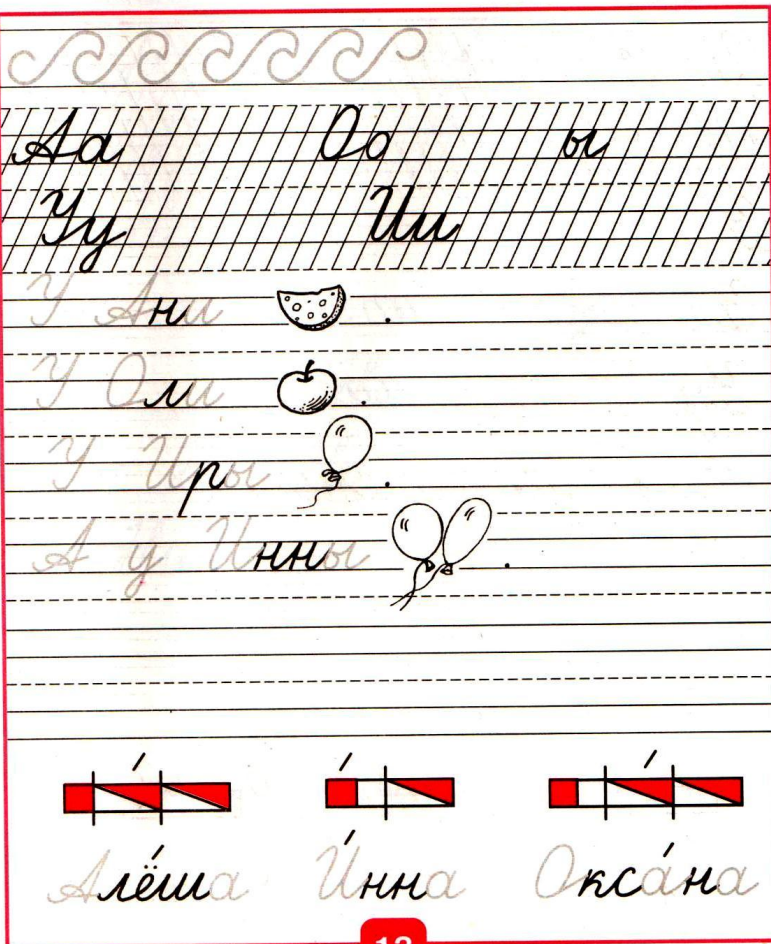 Аа Оо ы
Уу Ии
У Ани .
У Оли .
У Иры .
А у Инны .
Алёша И́нна Окса́на